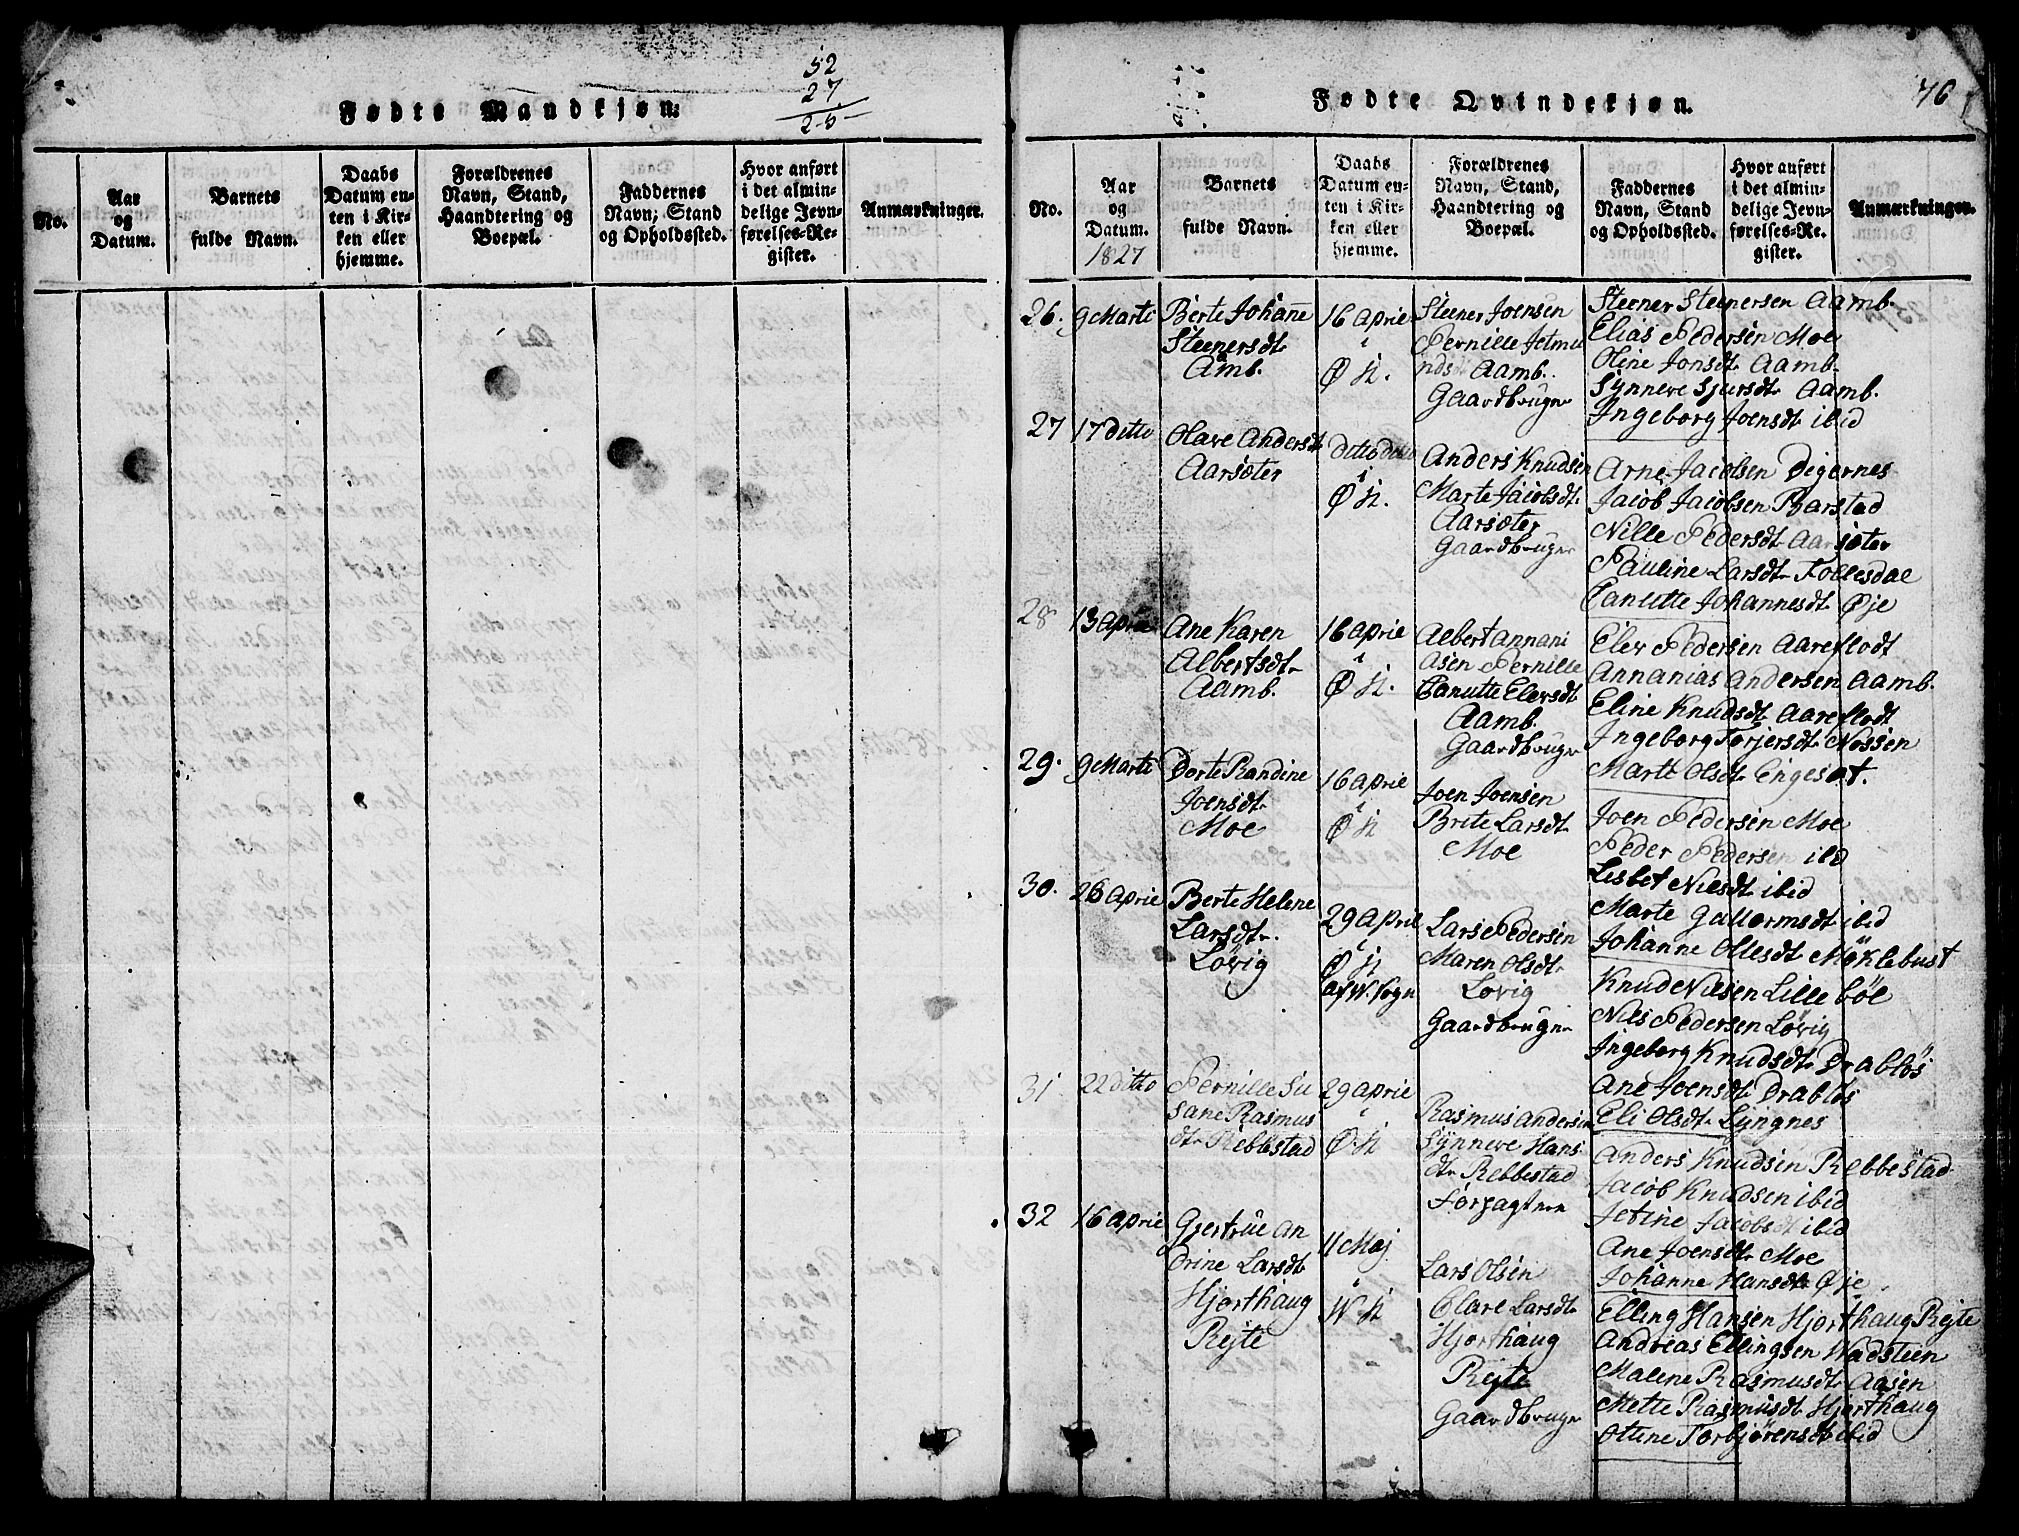 52
27
25
Fødte Mandkjøn.
No.
Aar og Datum.
Barnets fulde Navn.
Daabs Datum enten i Kirken eller hjemme.
Forældrenes Navn, Stand, Haandtering og Boepæl.
Faddernes Navn, Stand og Opholdssted.
Hvor anført i det almindelige Jevnførelses-Register.
Anmærkninger.
Fødte Qvindekjøn.
76
No.
Aar og Datum.
1827
Barnets fulde Navn.
Daabs Datum enten i Kirken eller hjemme.
Forældrenes Navn, Stand, Haandtering og Boepæl.
Faddernes Navn, Stand og Opholdssted.
Hvor anført i det almindelige Jevnførelses-Register.
Anmærkninger.
26.
9 Marti
Berte Johanne
Steenersdt.
Aamb.
16 April
i
Ø K.
Steener Joensen
Pernille Jetmu
ndsdt Aamb.
Gaardbruger
Steener Steenersen Aamb.
Elias Pedersen Moe
Oline Jonsdt Aamb.
Synneve Sjursdt Aamb.
Ingeborg Joensdt ibid
27
17 Ditto
Olave Andersdt
Aarsæter
Ditto Ditto
i
Ø K.
Anders Knudsen
Marte Jacobsdt.
Aarsæter
Gaardbruger
Arne Jacobsen Digernes
Jacob Jacobsen Barstad
Nille Pedersdt Aarsæter
Pauline Larsdt Follesdal
Canutte Johannesdt Øje
28
13 April
Ane Karen
Albertsdt
Aamb.
16 April
i
Ø K.
Albert Annani
asen Pernille
Canutte Elevsdt
Aamb.
Gaardbruger
Elev Pedersen Aareflodt
Annanias Andersen Aamb.
Eline Knudsdt Aareflodt
Ingeborg Torjersdt Nossen
Marte Olsdt Engeset.
29.
9 Marti
Dorte Randine
Joensdt
Moe
16 April
i
Ø K
Joen Joensen
Brite Larsdt
Moe
Joen Pedersen Moe
Peder Pedersen ibid
Lisbet Nilsdt ibid
Marte Guttormsdt ibid
Johanne Ollesdt Møklebust
30.
26 April
Berte Helene
Larsdt.
Løvig
29 April
i
Ø K
af W. Sogn
Lars Pedersen
Maren Olsdt
Løvig
Gaardbruger
Knud Nilsen Lille bøl
Nils Pedersen Løvig
Ingeborg Knudsdt Drabløs
Ane Joensdt Drabløs
Eli Olsdt Lyngnes
31
22 Ditto
Pernille Su
sane Rasmus
dt Ribbestad
29 April
i
Ø. K
Rasmus Andersen
Synneve Hans
dt Ribbestad
Forpagter
Anders Knudsen Rebbestad
Jacob Knudsen ibid
Jetine Jacobsdt ibid
Ane Joensdt Moe
Johanne Hansdt Øje
32
16 April
Gjertrue An
drine Larsdt
Hjorthaug
Rejte
11 Maj
i
W K
Lars Olsen
Olave Larsdt
Hjorthaug
Rejte
Gaardbruger
Elling Hansen Hjorthaug Rejte
Andreas Ellingsen Wadsteen
Malene Rasmusdt Aasen
Mette Rasmusdt Hjorthaug
Ottine Torbjørensdt ibid